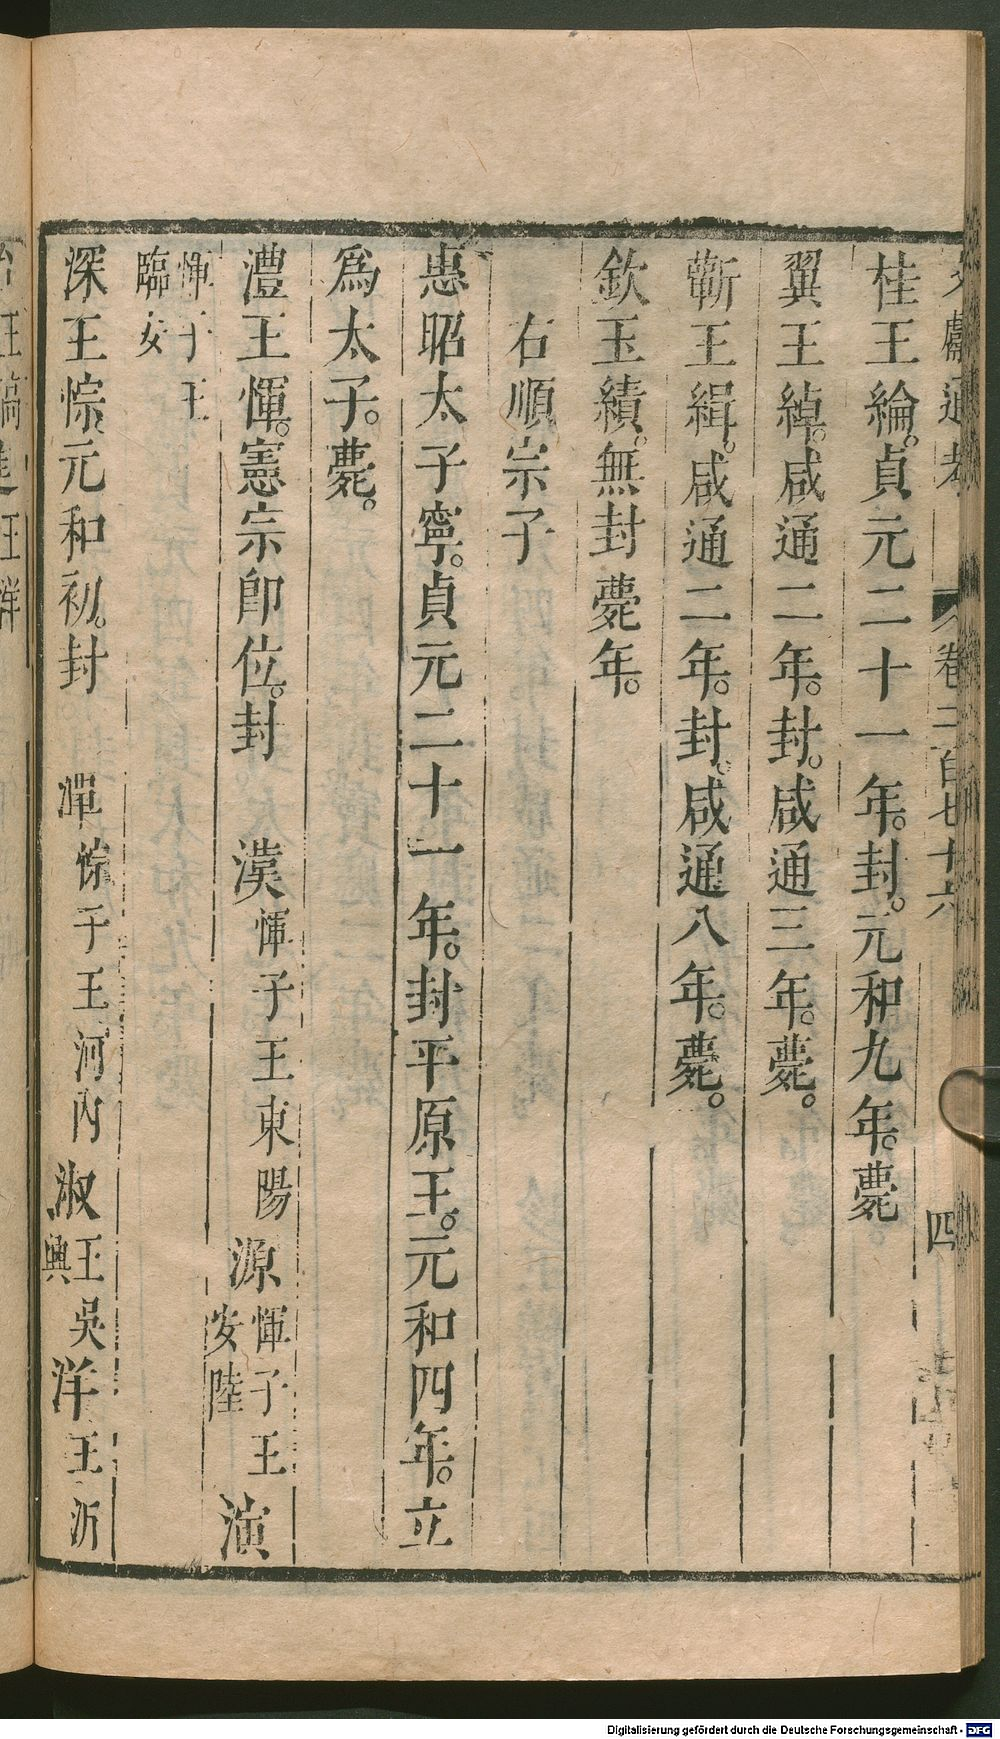 文獻通考 卷二百七十六 四
桂王綸。貞元二十一年。封。元和九年。薨
翼王綽。咸通二年。封。咸通三年。薨。
蘄王緝。咸通二年。封。咸通八年。薨。
欽王績。無封薨年。
右順宗子
惠昭太子寧。貞元二十一年。封平原王。元和四年。立
為太子。薨。
澧王惲。憲宗即位。封 漢惲子王東陽 源惲子王安陸 演
惲子王臨安
深王悰元和初。封 潭悰子王河內 淑王吳興 洋王沂
Digitalisierung gefördert durch die Deutsche Forschungsgemeinschaft - DFG